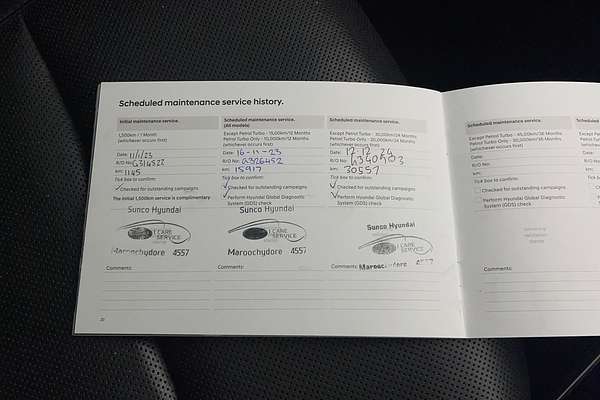 Scheduled maintenance service history.
Initial maintenance service.
1,500km / 1 Month
(whichever occurs first)
Date: 11/1/23
R/O No:
km: 1145
Tick box to confirm:
Checked for outstanding campaigns
The initial 1,500km service is complimentary
Sunco Hyundai
I CARE
SERVICE
Maroochydore 4557
Comments:
Scheduled maintenance service.
(All models)
Except Petrol Turbo - 15,000km/12 Months
Petrol Turbo Only - 10,000km/12 Months
(whichever occurs first)
Date: 16-11-23
R/O No: G326452
km: 15917
Tick box to confirm:
Checked for outstanding campaigns
Perform Hyundai Global Diagnostic
System (GDS) check
Sunco Hyundai
I CARE
SERVICE
Maroochydore 4557
Comments:
Scheduled maintenance service.
Except Petrol Turbo - 30,000km/24 Months
Petrol Turbo Only - 20,000km/24 Months
(whichever occurs first)
Date: 17-12-24
R/O No:
km: 30557
Tick box to confirm:
Checked for outstanding campaigns
Perform Hyundai Global Diagnostic
System (GDS) check
Sunco Hyundai
I CARE
SERVICE
Maroochydore 4557
Comments:
20
Scheduled maintenance service.
Except Petrol Turbo - 45,000km/36 Months
Petrol Turbo Only - 30,000km/36 Months
(whichever occurs first)
Date:
R/O No:
km:
Tick box to confirm:
Checked for outstanding campaigns
Perform Hyundai Global Diagnostic
System (GDS) check
Comments: